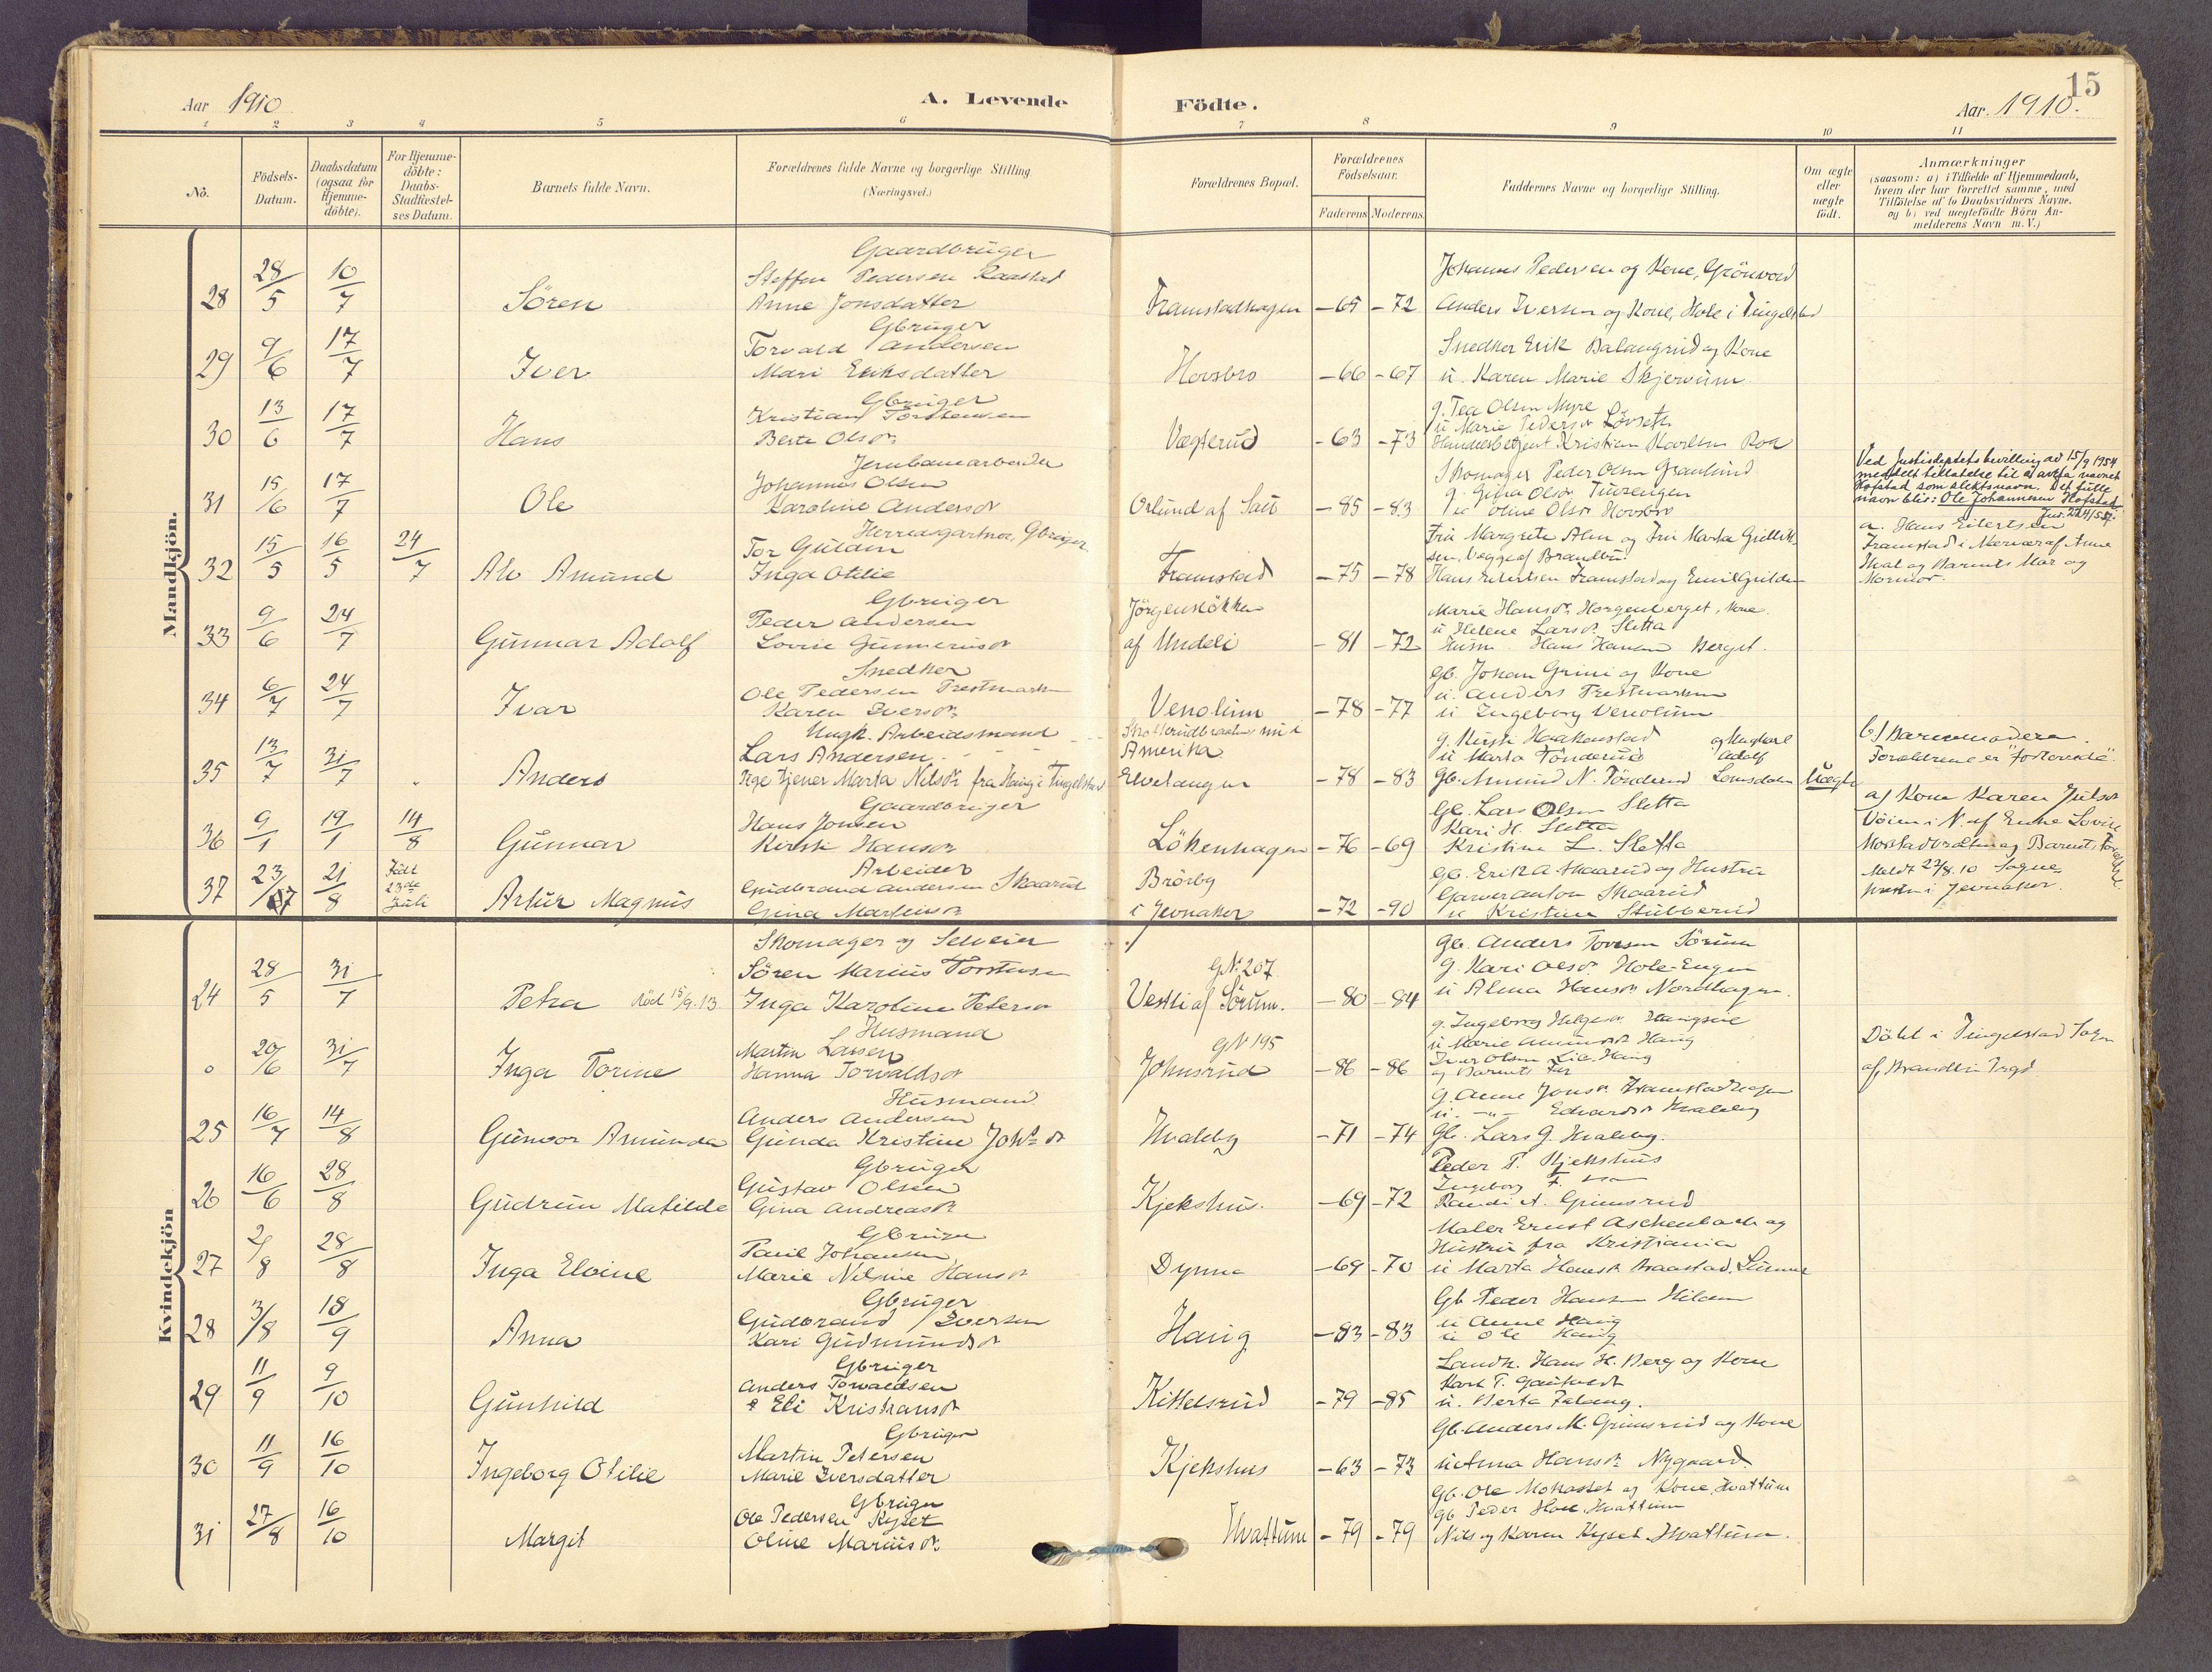 15
Aar 1910
A. Levende
Födte.
Aar. 1910.
1 2 3 4 5 6 7 8 9 10 11
No.
Födsels-Datum.
Daabsdatum (ogsaa for Hjemme-döbte).
For Hjemme-döbte: Daabs-Stadfæstel-ses Datum.
Barnets fulde Navn.
Forældrenes fulde Navne og borgerlige Stilling (Næringsvei.)
Forældrenes Bopæl.
Forældrenes Födselsaar.
Faderens Moderens
Faddernes Navne og borgerlige Stilling.
Om ægte eller uægte født.
Anmærkninger
(saasom: a) i Tilfælde af Hjemmedaab,
hvem der har forrettet samme, med
Tilföielse af to Daabsvidners Navne.
og b) ved uægtefödte Börn An-
melderens Navn m. V.)
Mandkjön.
Gaardbruger
28 28/5 10/7 Sören
Steffen Pedersen Raastad
Anne Jonsdatter
Framstadhagen -65 -72
Johannes Pedersen og Kone, Grönvold
Anders Iversen og Kone, Hole i Tingelstad
Gbruger
29 9/6 17/7 Iver
Torvald Andersen
Mari Eriksdatter
Hovsbro -66 -67
Snedker Erik Dalangrud og Kone
u. Karen Marie Skjervum
Gbruger
30 13/6 17/7 Hans
Kristian Torstensen
Berte Olsdr.
Vægterud -63 -73
g. Tea Olsen Myre
u Marie Pedersdr Lövseth
Handelsbetjent Kristian Karlsen Roa
Jernbanearbeider
31 15/6 17/7 Ole
Johannes Olsen
Karoline Andersdr
Orlund af Sau -85 -83
Skomager Peder Olsen Granlund
g. Gina Olsdr.
u Oline Olsdr Hovsbro
Ved Justisdeptets bevilling av 15/9 1954
meddelt tillatelse til å anta navnet
Hofstad som slektsnavn. Det fulle
navn blir: Ole Johannesen Hofstad
Herredsgartner, Gbruger
32 15/5 16/5 24/7 Alv Amund
Tor Gulden
Inga Otilie
Framstad -75 -78
Fru Margrete Alm og Fru Marta
Hans Eilertsen Framstad og Emil Gulden
a. Hans Eilertsen
Framstad i Nærvær af Anne
Hval og Barnets Mor og
Mormor.
Gbruger
33 9/6 24/7 Gunnar Adolf
Peder Andersen
Lovise Gunnerusdr
Jörgenslökken
af Undeli -81 -72
Marie Hansdr. Horgenberget, Kone
u Helene Larsdr. Sletta
Husm. Hans Hansen Berget.
Snedker
34 6/7 24/7 Ivar
Ole Pedersen Prestmarken
Karen Iversdr.
Venolum -78 -77
Gb. Johan Grini og Kone
u. Anders Prestmarken
u Ingeborg Venolum
Ungk. Arbeidsmand
35 13/7 31/7 Anders
Lars Andersen
Pige tjener Marta Nilsdr. fra Haug i Tingelstad
nu i
Amerika
Elvetangen -78 -83
g. Kirsti Haakenstad
u Marta Tönderud
Gb. Amund N. Tönderud
og Ungkarl
Adolf
Lomsdalen
Uægte
b/ Barnemoderen.
Forældrene er "forlovede".
Gaardbruger
36 9/1 19/1 14/8 Gunnar
Hans Jonsen
Kirsti Hansdr
Lökenhagen -76 -69
Gb. Lars Olsen Sletta
Kari H. Sletta
Kristine L. Sletta
a/ Kone Karen Julsdr
Vöien i N. af Enke Lovise
Arbeider
37 23/7 21/8
Födt
23de
Juli
Artur Magnus
Gudbrand Andersen Skaarud
Gina Martinsdr
Bröby
i Jevnaker -72 -90
Gb. Erik A. Skaarud og Hustru
Garver Anton Skaarud
u Kristine Stubberud
Meldt 22/8.10 Sogne-
presten i Jevnaker.
Kvindekjön
Skomager og Selveier
24 28/5 31/7 Petra död 15/9.13
Sören Marius Torstensen
Inga Karoline Petersdr
GN. 207.
Vestli af Sörum. -80 -84
Gb. Anders Torersen Sörum
g. Kari Olsdr. Hole-Engen
u Alma Hansdr. Nordhagen.
Husmand
o 20/6 31/7 Inga Torine
Martin Larsen
Hanna Torvaldsdr
GN 195
Johnsrud -86 -86
g. Ingeborg Helgesdr. Haugseie
u Marie Amundsdr Haug
Iver Olsen Lia, Haug
og Barnets Far
Döbt i Tingelstad Sogn
af
Husmand
25 16/7 14/8 Gunvor Amunda
Anders Andersen
Gunda Kristine Johs dr
Hvaleby -71 -74
g. Anne Jonsdr. Framstadhagen
u. -"- Edvardsdr Hvaleby
Gb. Lars G. Hvaleby.
Gbruger
26 16/6 28/8 Gudrun Matilde
Gustav Olsen
Gina Andreasdr.
Kjekshus. -69 -72
Peder P. Kjekshus
Ingeborg F.
Randi A. Grimsrud
Gbruger
27 2/8 28/8 Inga Eloine
Paul Johansen
Marie Nelsine Hansdr
Dynna -69 -70
Maler Ernst Aschenbach og
Hustru fra Kristiania
u Marta Hansdr. Braastad,
Gbruger
28 3/8 18/9 Anna
Gudbrand Iversen
Kari Gudmundsdr
Haug -83 -83
Gb Peder Hansen Hilden
u Anne Haug
u Ole Haug
Gbruger
29 11/9 9/10 Gunhild
Anders Torvaldsen
Eli Kristiansdr.
Kittelsrud -79 -85
Landh. Hans H. Berg og Kone
Karl T.
u. Berta Falang.
Gbruger
30 11/9 16/10 Ingeborg Otilie
Martin Petersen
Marie Iversdatter
Kjekshus -63 -73
Gb. Anders M. Grimsrud og Kone
u Anna Hansdr. Nygaard
Gbruger
31 27/8 16/10 Margit
Ole Pedersen Kyset
Oline Mariusdr.
Hvattum -79 -79
Gb. Ole Mohasset og Kone, Hvattum
Gb. Peder Hoel, Hvattum
Nils og Karen Kyset Hvattum.